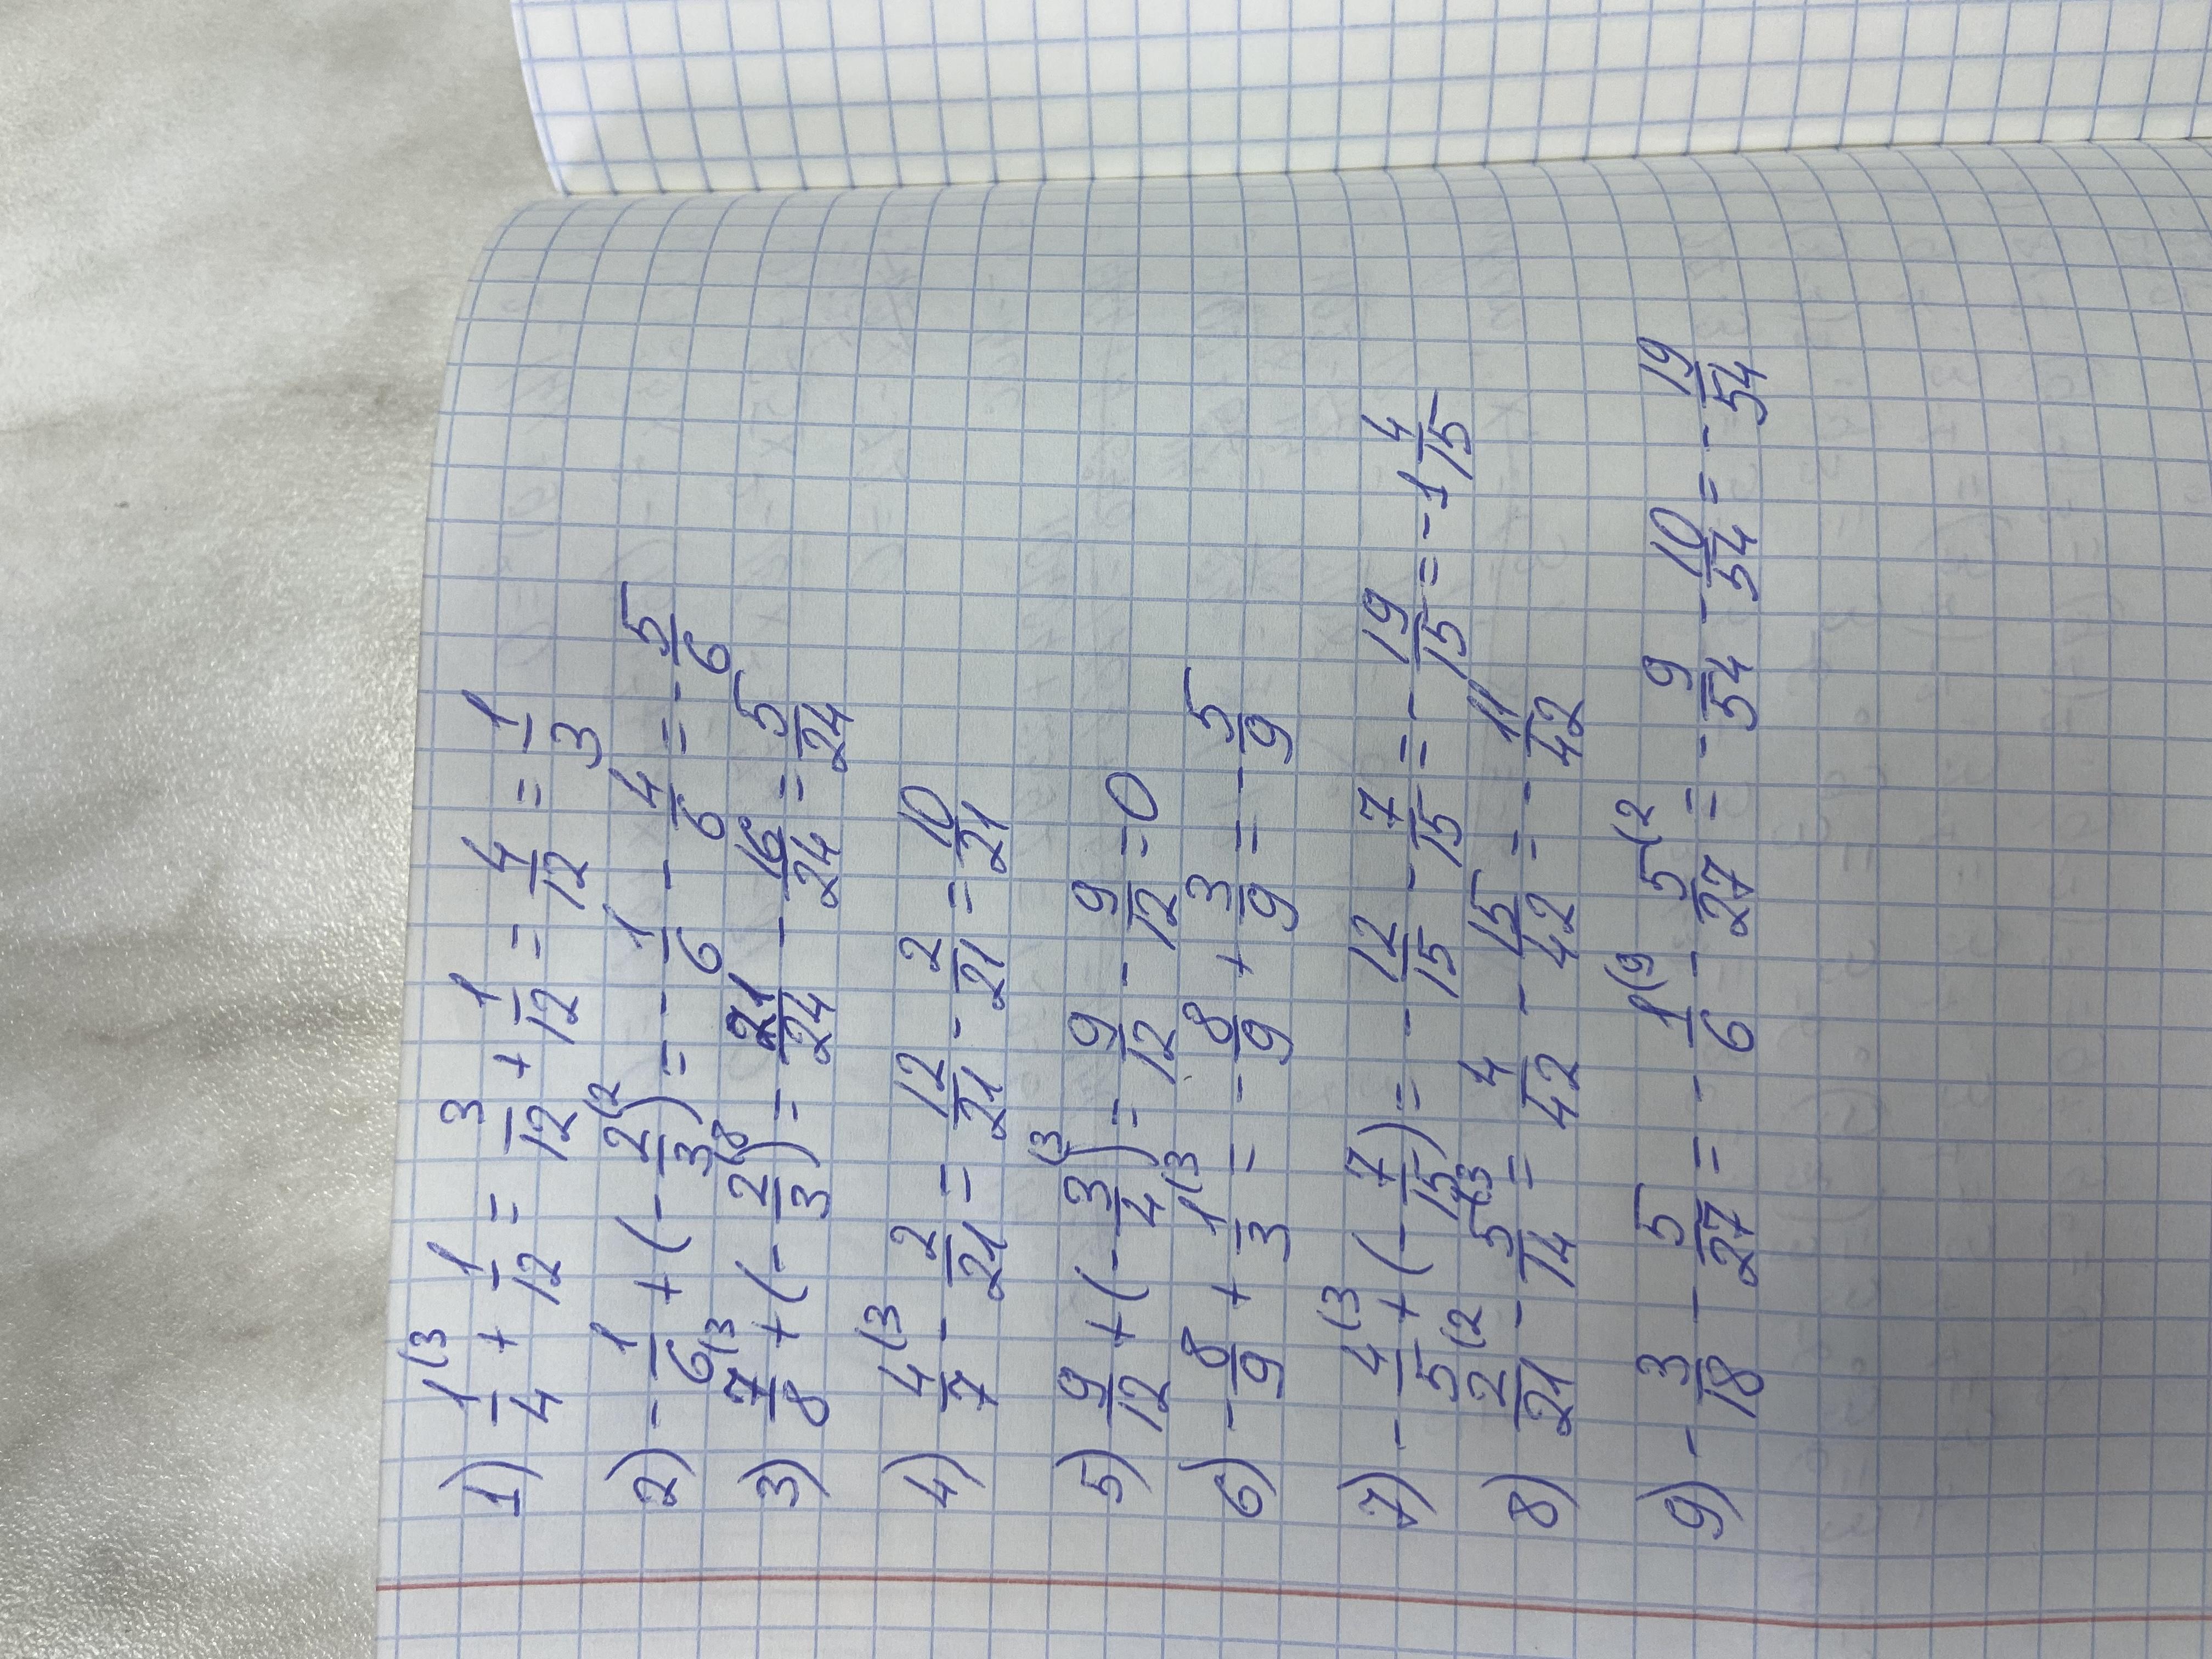 1) 1/4 (3 + 1/12 = 3/12 + 1/12 = 4/12 = 1/3
2) - 1/6 + (- 2/3 (2) = - 1/6 - 4/6 = - 5/6
3) 7/8 (3 + (- 2/3 (8) = 21/24 - 16/24 = 5/24
4) 4/7 (3 - 2/21 = 12/21 - 2/21 = 10/21
5) 9/12 + (- 3/4 (3) = 9/12 - 9/12 = 0
6) - 8/9 + 1/3 (3 = - 8/9 + 3/9 = - 5/9
7) - 4/5 (3 + (- 7/15) = - 12/15 - 7/15 = - 19/15 = - 1 4/15
8) 2/21 (2 - 5/14 (3 = 4/42 - 15/42 = - 11/42
9) - 3/18 - 5/27 = - 1/6 (9 - 5/27 (2 = - 9/54 - 10/54 = - 19/54